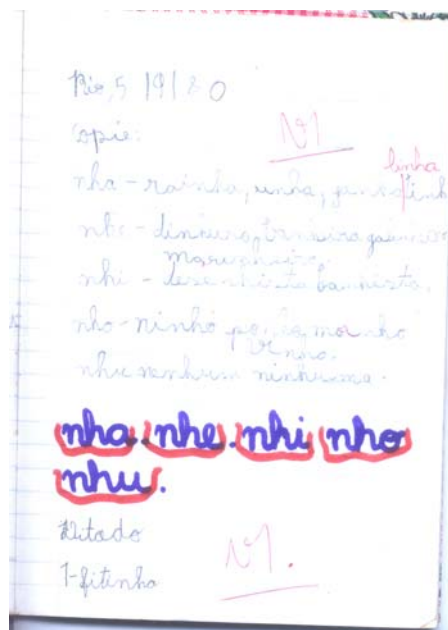 Rio, 5 19180
Copie:
linha
nha - rainha, unha,
nhe - dinheiro,
marinheiro.
nhi - desenhista banhista,
nho - ninho
vinho.
nhu nenhum nenhuma.
nha. nhe. nhi nho
nhu.
Ditado
1-fitinha